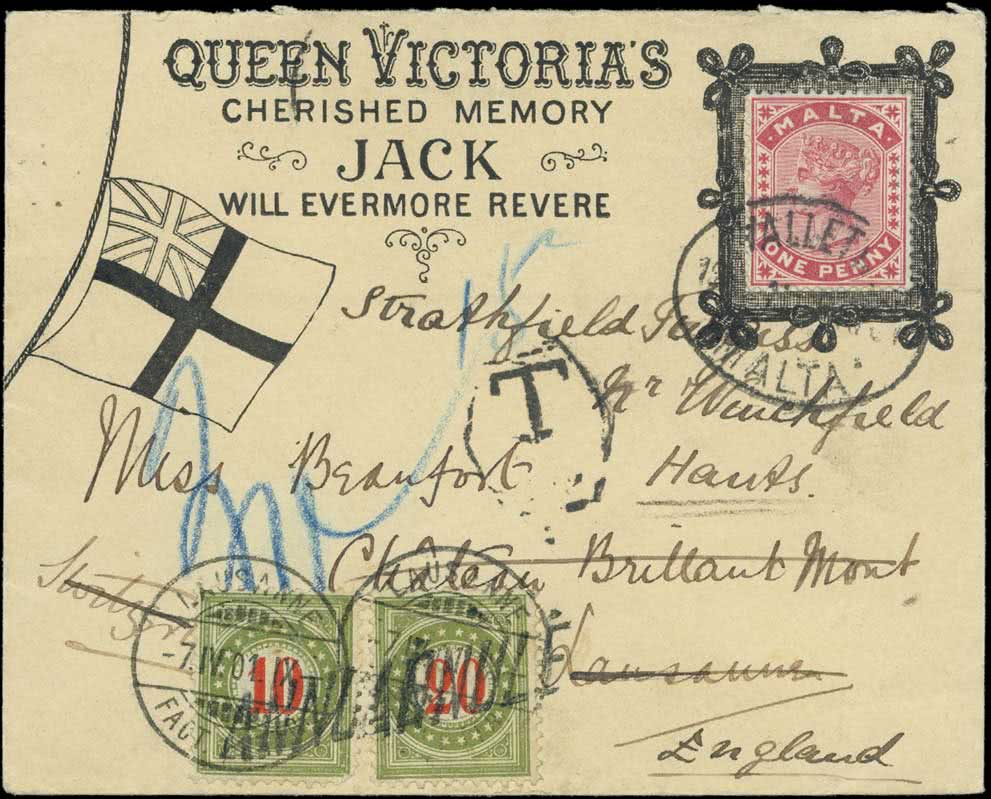 QUEEN VICTORIA'S
CHERISHED MEMORY
JACK
WILL EVERMORE REVERE
MALTA
ONE PENNY
VALLETTA
MALTA
15
Strathfield Turgiss
Nr Winchfield
Hants.
T
Miss Beaufort
Château Brillant Mont
Lausanne
England
LAUSANNE
-7.IV.01. IX
FACT. LETT.
10
LAUSANNE
20
ANNULÉ